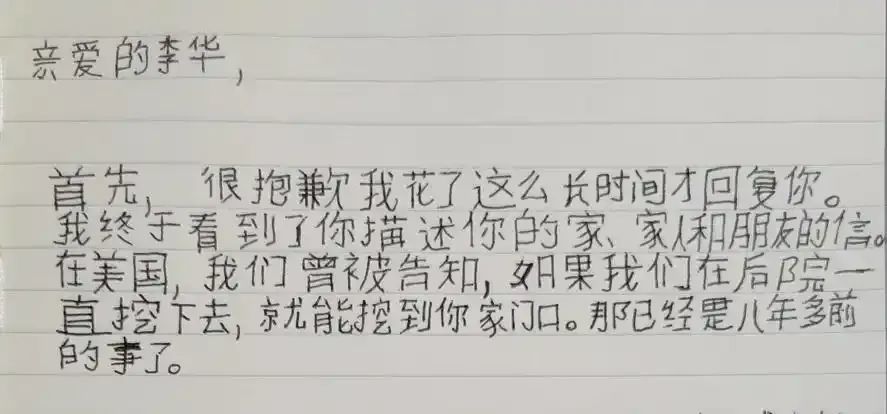 亲爱的李华,
首先, 很抱歉我花了这么长时间才回复你。
我终于看到了你描述你的家、家人和朋友的信。
在美国, 我们曾被告知, 如果我们在后院一
直挖下去, 就能挖到你家门口。那已经是八年多前
的事了。